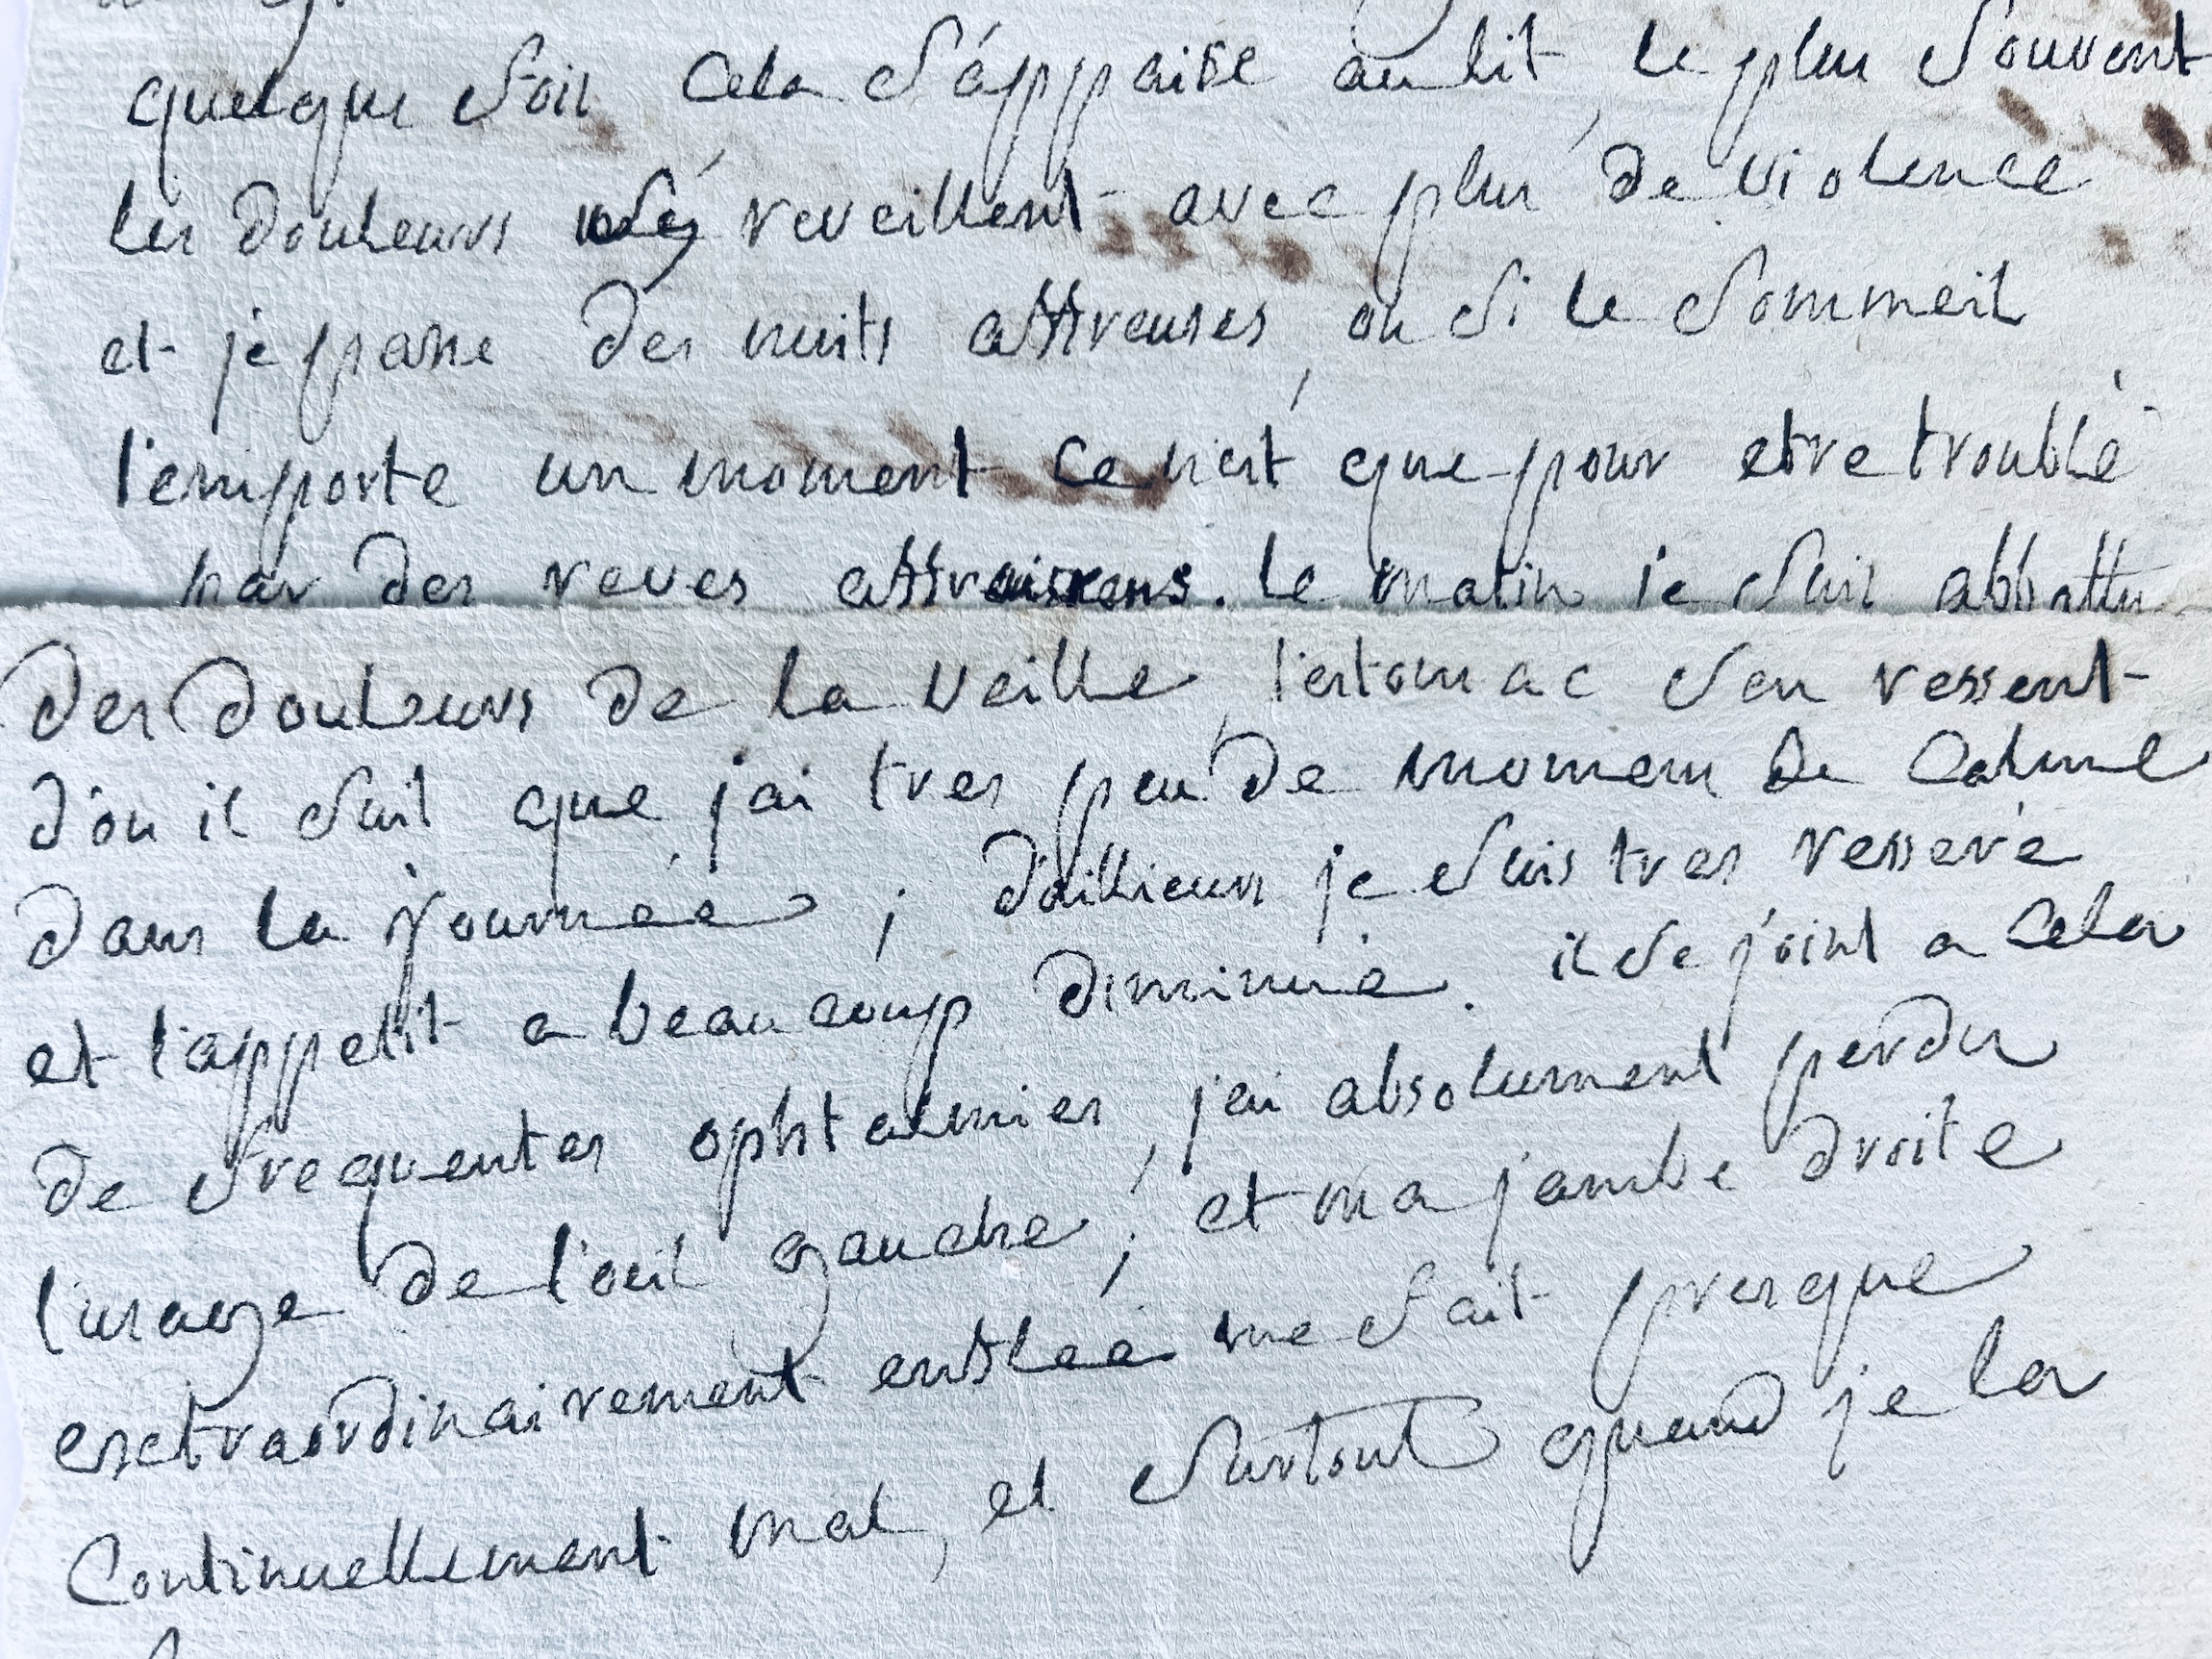 quelque foir cela s'áppaise au lit, le plus souvent
les douleurs sé reveillent avec plus de violence
et je passe des nuits affreuses, ou si le sommeil
l'emporte un moment ce n'est que pour etre troublé
par des reves affreux. le matin je suis abbattu
des douleurs de la veille, l'estomac s'en ressent
d'ou il suit que j'ai tres peu de momens de calme
dans la journée ; d'aillieurs je suis tres resseré
et l'appetit a beaucoup diminué. il se joint a cela
de frequentes ophtalmies, j'ai absolument perdu
l'usage de l'oeil gauche ; et ma jambe droite
exctraordinairement enflée me fait presque
continuellement mal, et surtout quand je la